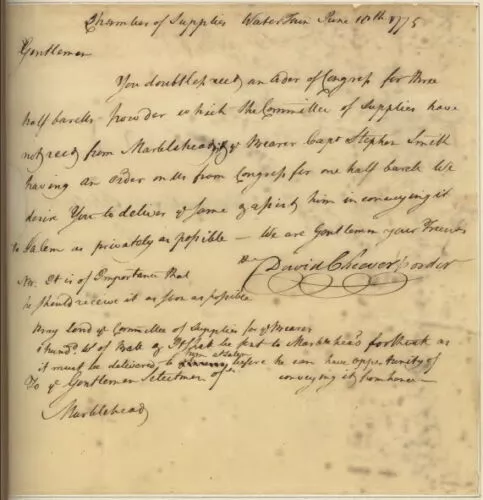 Chamber of Supplies Water Town June 18th 1775
Gentlemen
You doubtless recd an order of Congress for three
half barells powder which the Committee of Supplies have
not recd from Marblehead, ye Bearer Capt Stephen Smith
having an order on us from Congress for one half barell We
desire You to deliver ye same & assist him in conveying it
to Salem as privately as possible — We are Gentlemen your Friends
David Cheever pr order
NB. It is of Importance that
he should receive it as soon as possible
Pray lend ye Committee of Supplies for ye Bearer
1 hund. Wt of
be sent to Marblehead forthwith as
it must be delivered to him at Salem before he can have opportunity of
conveying it from hence —
To ye Gentlemen Selectmen of
Marblehead